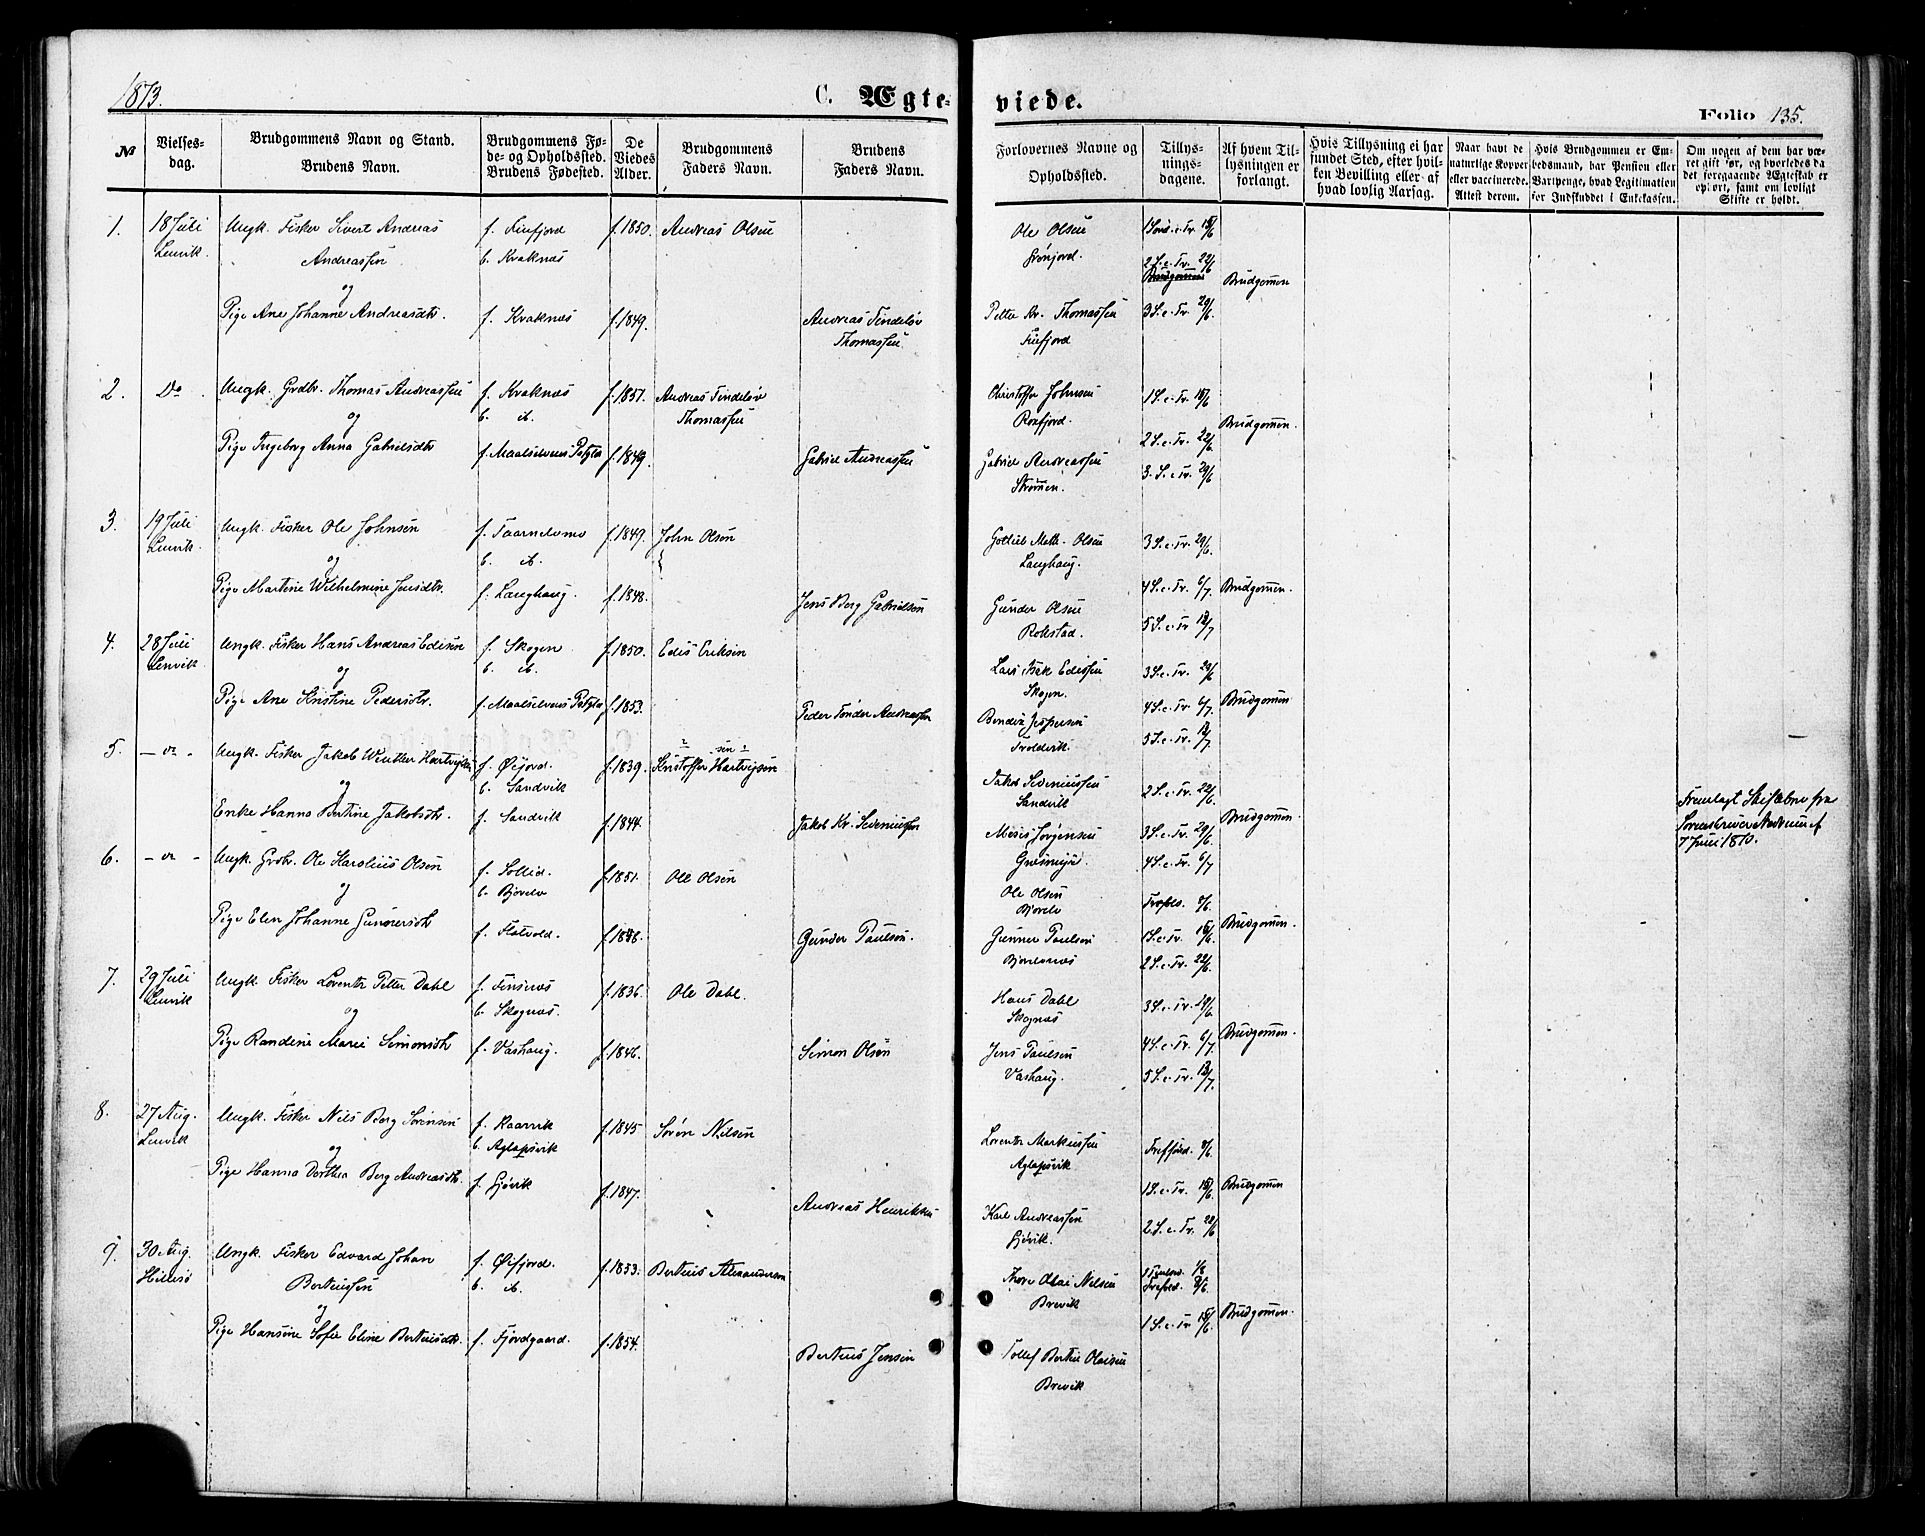 1873.
C. Ægte-
viede.
Folio 135.
№
Vielses-
dag.
Brudgommens Navn og Stand.
Brudens Navn.
Brudgommens Fø-
de- og Opholdssted.
Brudens Fødested.
De
Viedes
Alder.
Brudgommens
Faders Navn.
Brudens
Faders Navn.
Forlovernes Navne og
Opholdssted.
Tillys-
nings-
dagene.
Af hvem Til-
lysningen er
forlangt.
Hvis Tillysning ei har
fundet Sted, efter hvil-
ken Bevilling eller af
hvad lovlig Aarsag.
Naar havt de
naturlige Kopper
eller vaccinerede.
Attest derom.
Hvis Brudgommen er Em-
bedsmand, har Pension eller
Vartpenge, hvad Legitimation
for Indskuddet i Enkekassen.
Om nogen af dem har væ-
ret gift før, og hvorledes da
det foregaaende Ægteskab er
ophørt, samt om lovligt
Skifte er holdt.
1. 18 Juli Ungk. Fisker Sivert Andreas f. Finfjord f. 1850. Andreas Olsen Ole Olsen 1 Sønd. e. Tr. 15/6
Lenvik. Andreassen b. Kraknæs Grønjord. 2 S. e. Tr. 22/6
og Brudgommen Brudgommen
Pige Ane Johanne Andreasdtr. f. Kraknæs f. 1849. Andreas Tindeløv Petter Kr. Thomassen 3 S. e. Tr. 29/6.
Thomassen Finfjord
2. Do. Ungk. Grdbr. Thomas Andreassen f. Kraknæs f. 1851. Andreas Tindeløv Christoffer Johnsen 1 S. e. Tr. 15/6
og b. ib. Thomassen Rossfjord. Brudgommen.
Pige Ingeborg Anna Gabrielsdtr f. Maalselvens Pstgld f. 1849. Gabriel Andreassen Gabriel Andreassen 2 S. e. Tr. 22/6.
Strømmen. 3. S. e. Tr. 29/6
3. 19 Juli Ungk. Fisker Ole Johnsen f. Taarnelvmo f. 1849. John Olsen Gotlieb Math. Olsen 3 S. e. Tr. 29/6.
Lenvik. og b. ib. Langhaug.
Pige Martine Wilhelmine Jensdtr. f. Langhaug. f. 1848. Jens Berg Gabrielsen Gunder Olsen 4 S. e. Tr. 6/7 Brudgommen.
Rokstad. 5 S. e. Tr 13/7
4. 28 Juli Ungk. Fisker Hans Andreas Edisen f. Skogen f. 1850. Edis Eriksen Lars Isak Edissen 3 S. e. Tr. 29/6
Lenvik og b. ib. Skogen.
Pige Ane Kristine Pedersdtr. f. Maalselvens Pstgld f. 1853. Peder Tønder Andreassen Bendix Jespersen 4 S. e. Tr. 6/7. Brudgommen
Troldvik. 5 S. e. Tr. 13/7
5. - do - Ungk. Fisker Jakob Winther Hartvigsen f. Øijord. f. 1839. Kristoffer Hartvigsen Jakob Seveniussen 2 S. e. Tr. 22/6.
og b. Sandvik Sandvik
Enke Hanna Bertine Jakobsdtr. f. Sandvik f. 1844. Jakob Kr. Seveniussen Moses Jørgensen 3 S. e. Tr. 29/6 Brudgommen. Fremlagt Skifebrev fra
Græsmyr. 4 S. e. Tr. 6/7 Sorenskriver
7 Juni 1870.
6. - do - Ungk. Grdbr. Ole Karolius Olsen f. Sollid. f. 1851. Ole Olsen Ole Olsen
og b. Bjorelv Bjorelv 8/6.
Pige Elen Johanne Gundersdtr f. Flatvold. f. 1848. Gunder Paulsen. Gunner Paulsen 1 S. e. Tr. 15/6. Brudgommen.
2 S. e. Tr. 22/6.
7. 29 Juli Ungk. Fisker Lorentz Petter Dahl f. Finsnæs f. 1836. Ole Dahl. Hans Dahl 3 S. e. Tr. 29/6.
Lenvik og b. Skognæs. Skognæs
Pige Randine Marie Simonsdtr f. Vashaug. f. 1846. Simon Olsen Jens Paulsen 4 S. e. Tr. 6/7. Brudgommen.
Vashaug. 5 S. e. Tr. 13/7.
8. 27 Aug. Ungk. Fisker Nils Berg Sørensen f. Kaarvik f. 1845 Søren Nilsen Lorentz Markussen 8/6.
Lenvik og b. Aglapsvik Aglapsvik
Pige Hanna Dorthea Berg Andreasdtr. f. Gjøvik f. 1847. Andreas Henriksen Karl Andreassen 1 S. e. Tr. 15/6. Brudgommen
Gjøvik. 2 S. e. Tr. 22/6
9. 30 Aug. Ungk. Fisker Edvard Johan f. Øifjord. f. 1853. Berteus Alexandersen Thore Olai Nilsen
Hillesø Berteussen b. ib. Brevik
og 1 S. e. Tr 15/6. Brudgommen.
Pige Hansine Sofie Eline Berteusdtr. f. Fjordgaard. f. 1854. Berteus Jensen Tollef Berteu Olaisen
Brevik